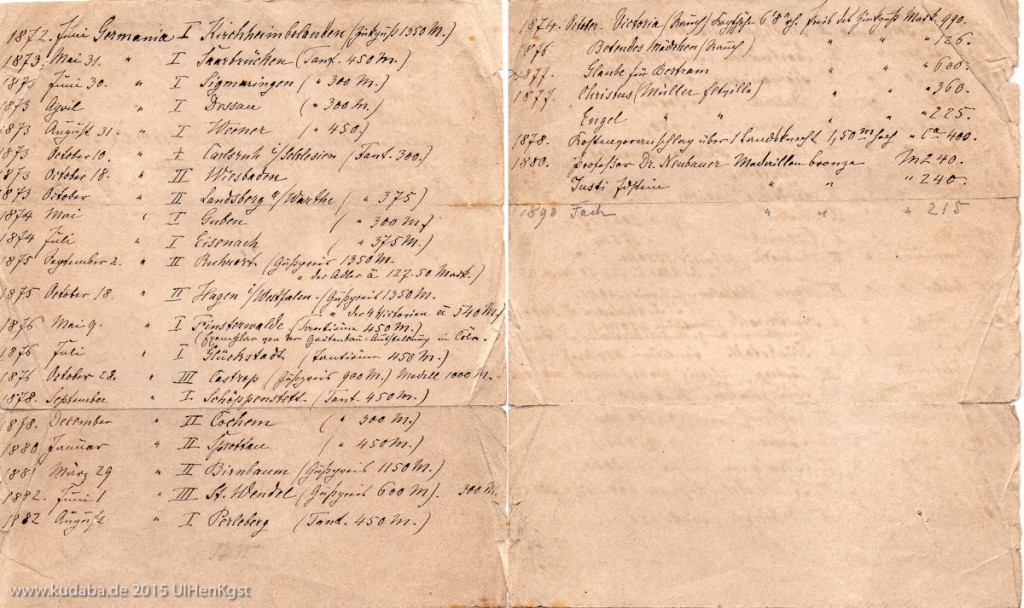 1872. Juni Germania I Kirchheimbolanden (Gußpreis 1350 M.)
1873. Mai 31. " I Saarbrücken (Tant. 450 M.)
1873 Juni 30. " I Sigmaringen ( " 300 M.)
1873 April " I Dessau ( " 300 M.)
1873 August 31. " I Weener ( " 450.)
1873 October 10. " I Carlsruh i/Schlesien (Tant. 300.)
1873 October 18. " II Wiesbaden
1873 October " II Landsberg a/Warthe ( " 375)
1874 Mai " I Guben ( " 300 M)
1874 Juli " I Eisenach ( " 375 M.)
1875 September 2. " II Ruhrort (Gußpreis 1350 M.
" des Adler à 127.50 Mark.)
1875 October 18. " II Hagen i/Westphalen. (Gußpreis 1350 M.
" der 4 Victorien à 540 M)
1876 Mai 9. " I Finsterwalde (Tantieme 450 M.)
(Exemplar von der Gartenbau-Ausstellung in Cöln.
1876 Juli " I Glückstadt (Tantieme 450 M.)
1876 October 28. " III Castrop (Gußpreis 900 M.) Modell 1000 M.
1878. September " I Schöppenstedt (Tant. 450 M.)
1878. December " II Cochem ( " 300 M.)
1880 Januar " II Sprottau ( " 450 M.)
1881 März 29 " II Birnbaum (Gußpreis 1150 M.)
1882. Juni 1 " III St. Wendel (Gußpreis 600 M). 300 M.
1882 August " I Perleberg (Tant. 450 M.)
1874. October. Victoria (Rauch) 6'8" h. Preis des Zinkguß Mark. 990.
1876 Betendes Mädchen (Rauch) " " " 126.
1877. Glaube für Bertram " " " 600.
1877. Christus (Müller " " 360.
Engel " " " " " 225.
1878. Kostenvoranschlag über 1 Landsknecht 1,50 m hoch " Ca 400.
1880. Professor Dr. Neubauer Medaillon bronze M 240.
Justi Idstein " " " 240.
1890 Fach " " " 215
www.kudaba.de 2015 UlHenKgst